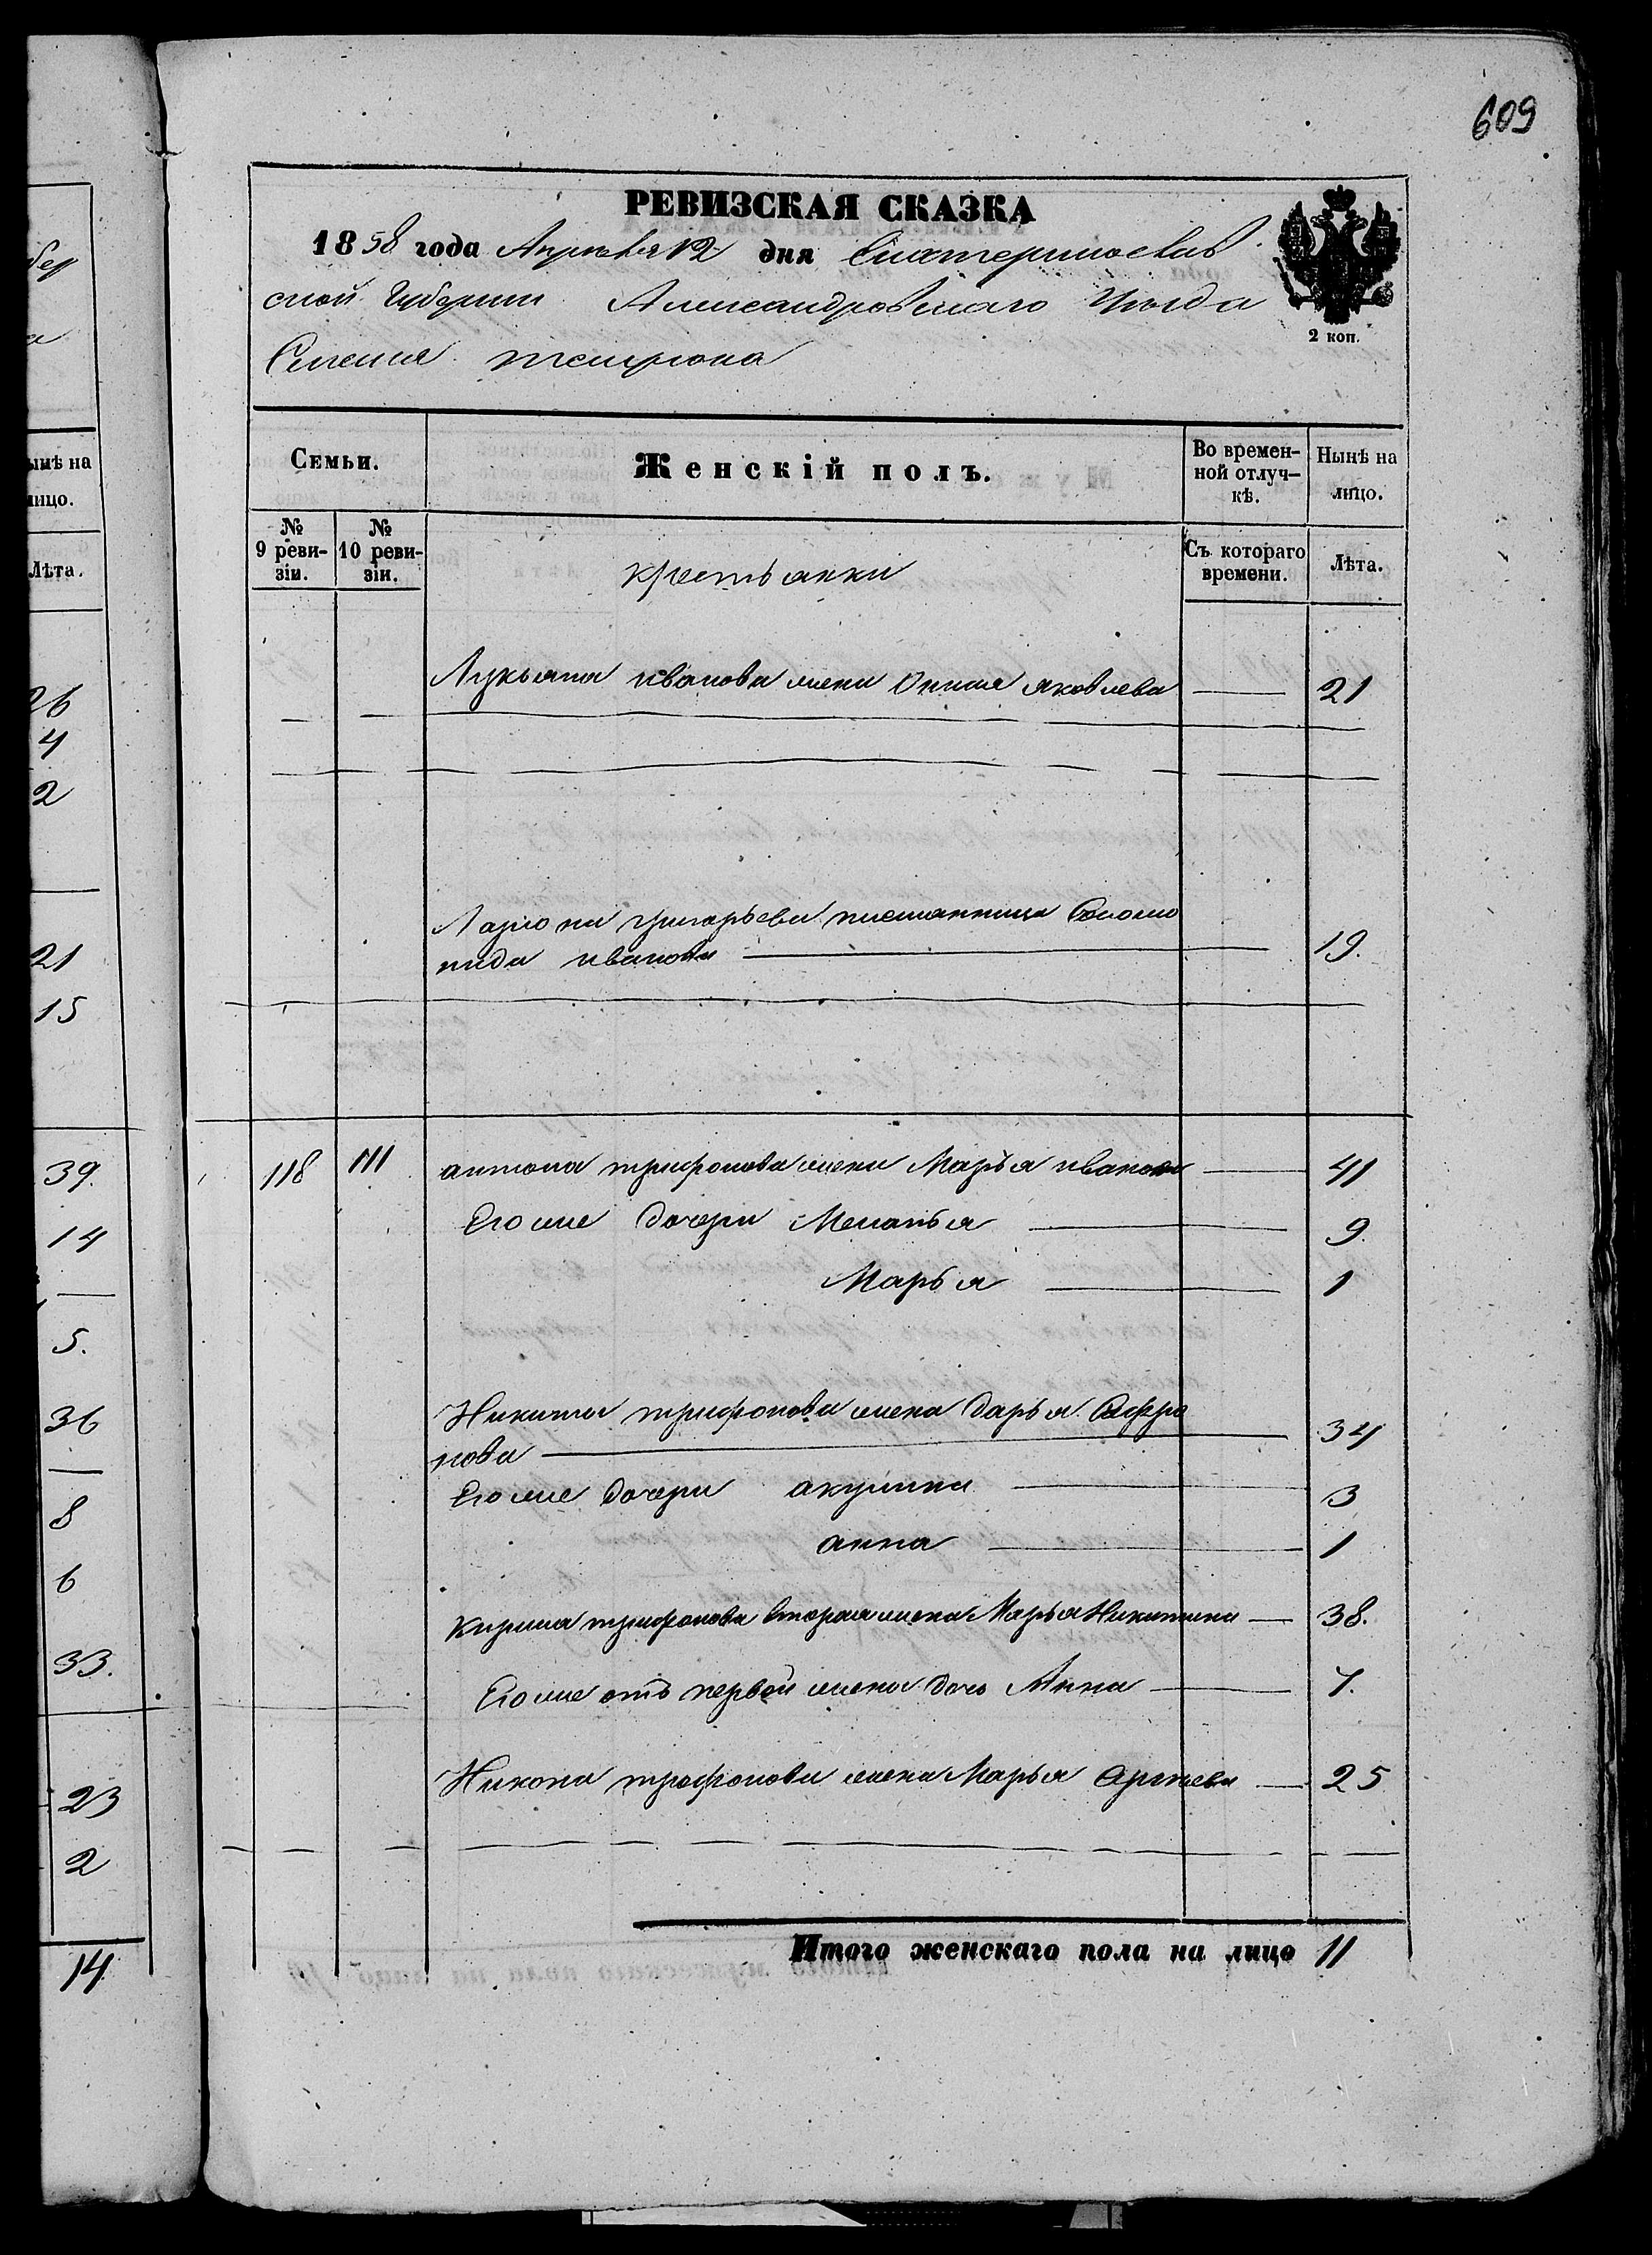 609
РЕВИЗСКАЯ СКАЗКА
1858 года Апреля 12 дня Екатеринослав
ской Губернии Александровскаго Уезда
Селения
2 коп.
Семьи.
Женскій полъ.
Во времен-
ной отлуч-
кѣ.
Нынѣ на
лицо.
№
9 реви-
зіи.
№
10 реви-
зіи.
крестьянки
Съ котораго
времени.
Лѣта.
Лукьяна иванова жена яковлева 21
Лариона григорьева племянница Соломо
нида иванова 19.
118 111 антона трифонова жена Марья иванова 41
Его же дочери Меланья 9.
Марья 1
Никиты трифонова жена дарья Сафро
нова 34
Его же дочери акулина 3
анна 1
Кирила трифонова вторая жена Марья Никитина 38.
Его же отъ первой жены дочь Анна 7.
Никона трофонова жена Марья Сргиева 25
Итого женскаго пола на лицо 11
бер
а
ынѣ на
лицо.
Лѣта.
26
4
2
21
15
39.
14
5.
36
8
6
33.
23
2
14